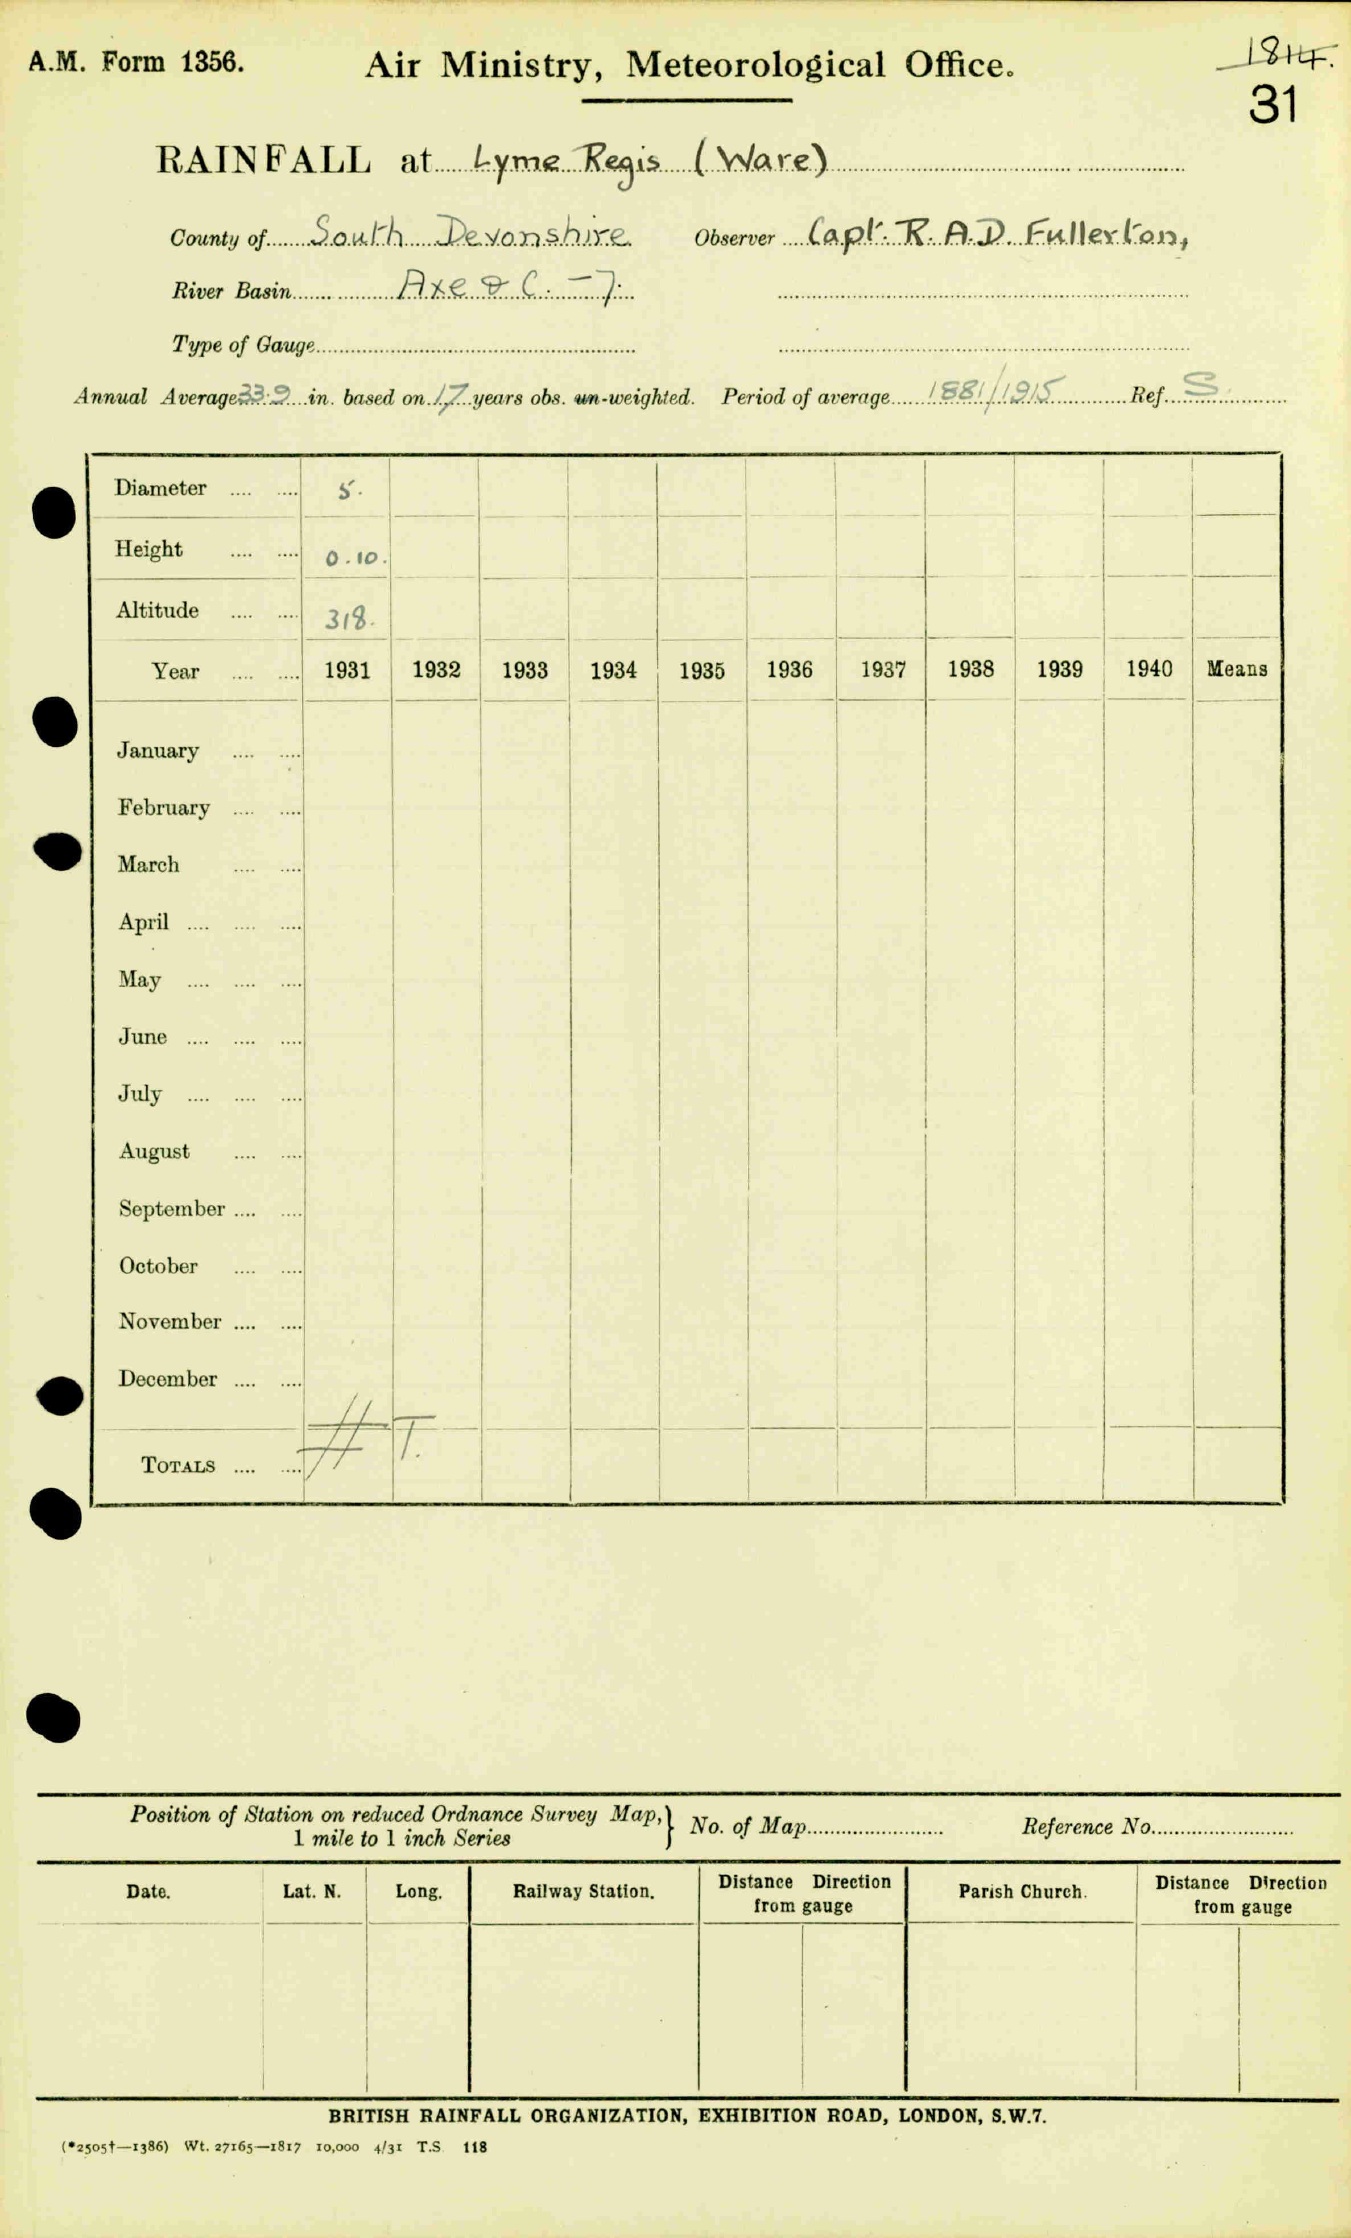 A.M. Form 1356. Air Ministry, Meteorological Office. 1814.
31
RAINFALL at Lyme Regis (Ware)
County of South Devonshire Observer Capt. R. A. D. Fullerton,
River Basin Axe & C. - 7.
Type of Gauge
Annual Average 33.9 in. based on 17 years obs. un-weighted. Period of average 1881/1915 Ref. S
Diameter .... .... 5.
Height .... .... 0.10.
Altitude .... .... 318.
Year .... .... 1931 1932 1933 1934 1935 1936 1937 1938 1939 1940 Means
January .... ....
February .... ....
March .... ....
April .... .... ....
May .... .... ....
June .... .... ....
July .... .... ....
August .... ....
September .... ....
October .... ....
November .... ....
December .... ....
TOTALS .... .... # T.
Position of Station on reduced Ordnance Survey Map, } No. of Map Reference No.
1 mile to 1 inch Series
Date. Lat. N. Long. Railway Station. Distance Direction from gauge Parish Church. Distance Direction from gauge
BRITISH RAINFALL ORGANIZATION, EXHIBITION ROAD, LONDON, S.W.7.
(*2505†—1386) Wt. 27165—1817 10,000 4/31 T.S. 118